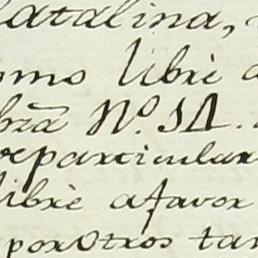 Catalina,
omo libre
bra Nº. 14.
particular
libre afavor
porOtros tan